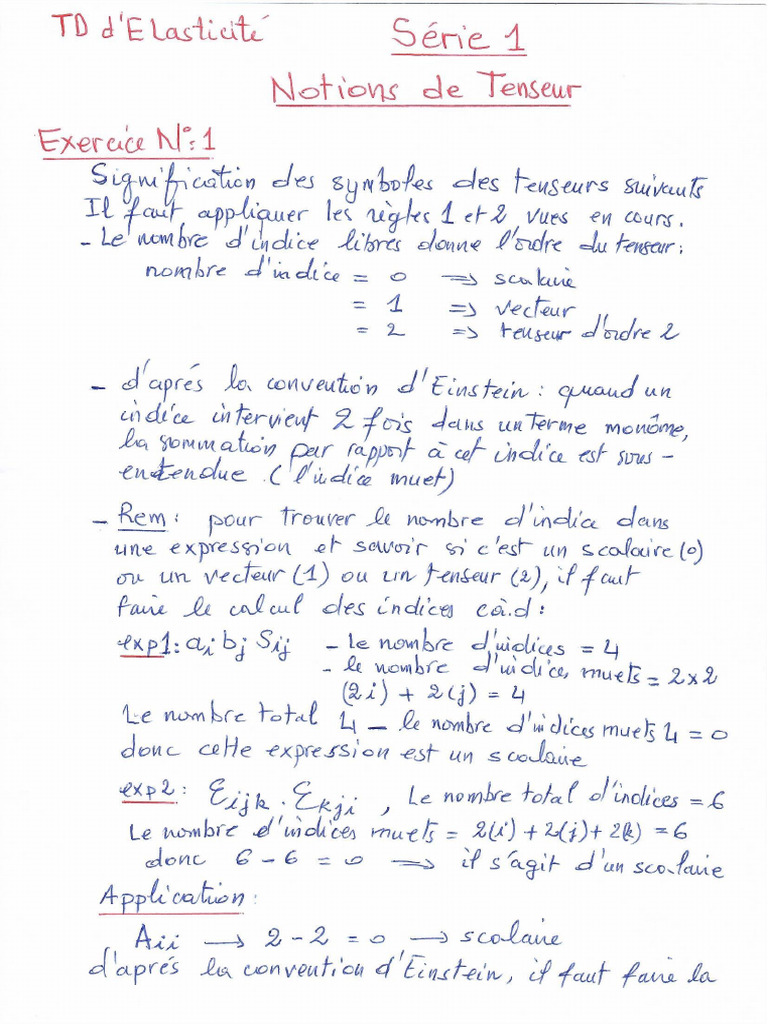 TD d'Elasticité
Série 1
Notions de Tenseur
Exercice N°:1
Signification des symboles des tenseurs suivants
Il faut appliquer les règles 1 et 2 vues en cours.
- Le nombre d'indice libres donne l'ordre du tenseur:
nombre d'indice = 0 => scalaire
= 1 => vecteur
= 2 => tenseur d'ordre 2
- d'aprés la convention d'Einstein : quand un
indice intervient 2 fois dans un terme monôme,
la sommation par rapport à cet indice est sous-
entendue. (l'indice muet)
- Rem : pour trouver le nombre d'indice dans
une expression et savoir si c'est un scalaire (0)
ou un vecteur (1) ou un tenseur (2), il faut
faire le calcul des indices càd.d :
exp1: ai bj Sij - Le nombre d'indices = 4
- le nombre d'indices muets = 2x2
(2i) + 2(j) = 4
Le nombre total 4 - le nombre d'indices muets 4 = 0
donc cette expression est un scalaire
exp2 : Ɛijk . Ɛkji , Le nombre total d'indices = 6
Le nombre d'indices muets = 2(i) + 2(j) + 2(k) = 6
donc 6 - 6 = 0 => il s'agit d'un scalaire
Application :
Aii → 2 - 2 = 0 → scalaire
d'aprés la convention d'Einstein, il faut faire la